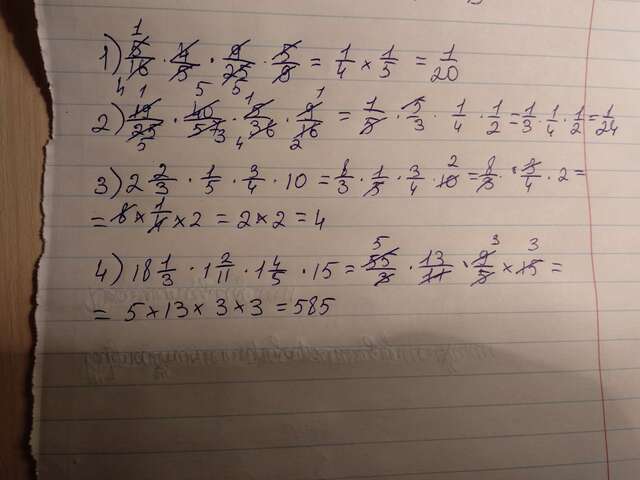 1) 5/16 · 4/5 · 9/25 · 5/9 = 1/4 × 1/5 = 1/20
2) 19/25 · 40/57 · 5/36 · 9/16 = 1/5 · 5/3 · 1/4 · 1/2 = 1/3 · 1/4 · 1/2 = 1/24
3) 2 2/3 · 1/5 · 3/4 · 10 = 8/3 · 1/5 · 3/4 · 10 = 8/3 · 3/4 · 2 =
= 8 × 1/4 × 2 = 2 × 2 = 4
4) 18 1/3 · 1 2/11 · 1 4/5 · 15 = 55/3 · 13/11 · 9/5 × 15 =
= 5 × 13 × 3 × 3 = 585